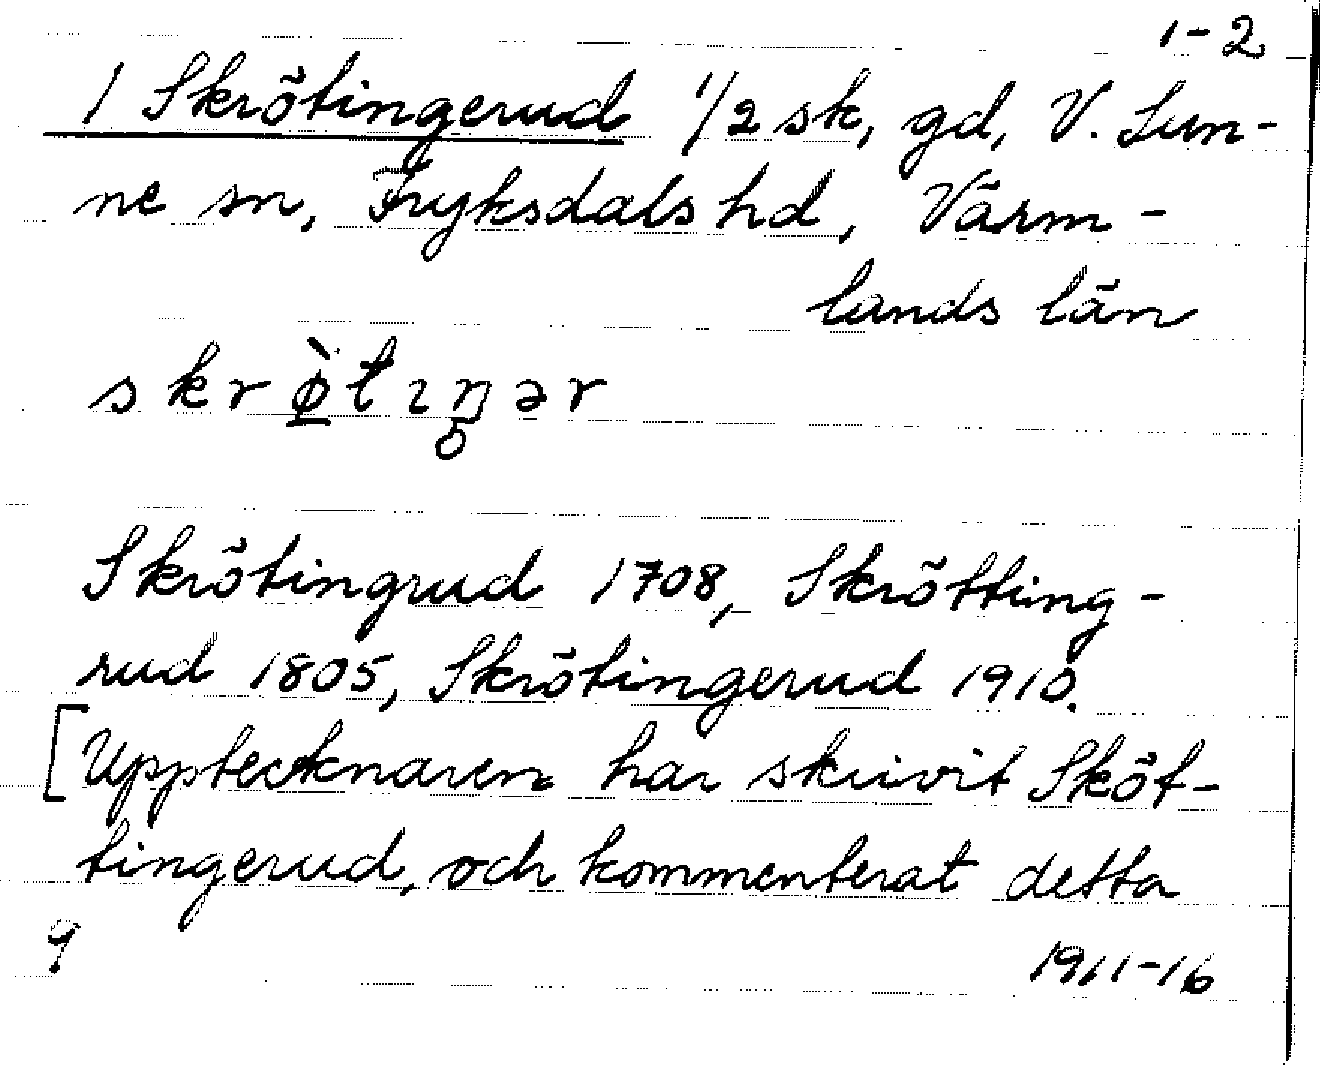 1-2
1 Skrötingerud 1/2 sk, gd, V. Sun-
ne sn, Fryksdals hd, Värm-
lands län
skrø̀tɩŋər
Skrötingrud 1708, Skrötting-
rud 1805, Skrötingerud 1910.
[Upptecknaren har skrivit Sköt-
tingerud, och kommenterat detta
9
1911-16